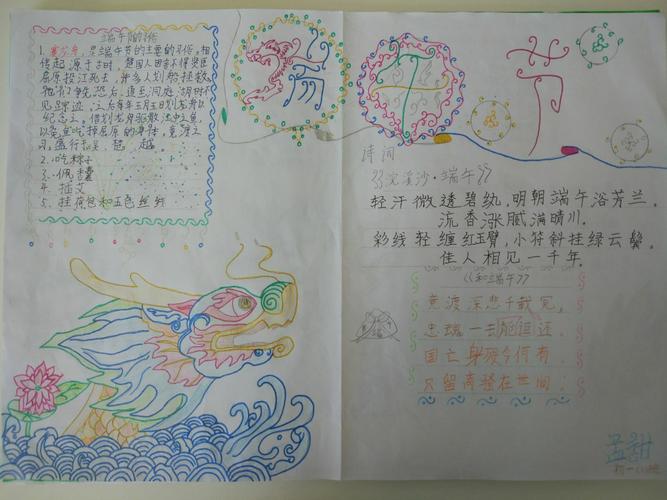 端午节的习俗
1.赛龙舟,是端午节的主要的习俗。相
传起源于古时,楚国人因舍不得贤臣
屈原投江死去,许多人划船追赶拯救。
他们争先恐后,追至洞庭湖时不
见踪迹,之后每年五月五日划龙舟以
纪念之。借划龙舟驱散江中之鱼,
以免鱼吃掉屈原的身体。竞渡之
习,盛行于吴、越、楚。
2.吃粽子
3.佩香囊
4.插艾
5.挂荷包和五色丝线
端午节
诗词
《浣溪沙·端午》
轻汗微透碧纨,明朝端午浴芳兰。
流香涨腻满晴川。
彩线轻缠红玉臂,小符斜挂绿云鬟。
佳人相见一千年。
《和端午》
竞渡深悲千载冤,
忠魂一去讵还。
国亡身殒今何有,
只留离骚在世间。
孟甜